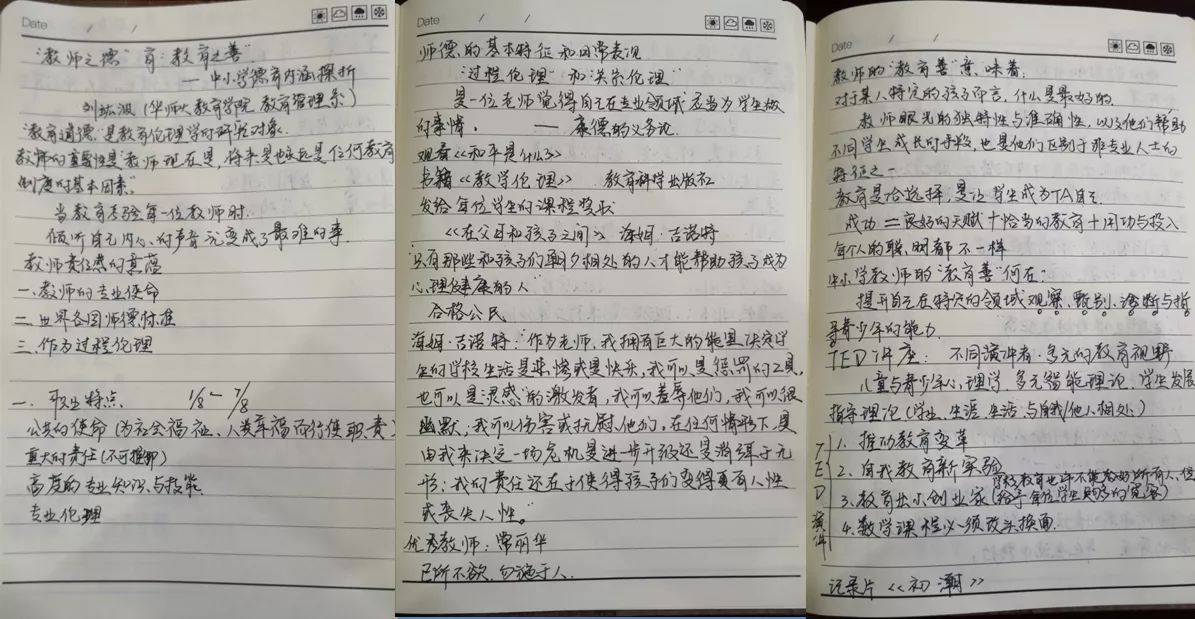 Date / /
"教师之德"育"教育之善"
——中小学德育内涵探析
刘竑波(华师大教育学院 教育管理系)
"教育道德"是教育伦理学的研究对象.
教师的重要性是"教师现在是,将来是也永远是任何教育
制度的基本因素."
当教育考验每一位教师时.
倾听自己内心的声音就变成了最难的事.
教师责任感的意蕴
一.教师的专业使命
二.世界各国师德标准
三.作为过程伦理
一.职业特点 1/8 — 7/8
公共的使命(为社会福祉、人类幸福而行使职责)
重大的责任(不可推卸)
高度的专业知识与技能
专业伦理
Date / /
师德的基本特征和日常表现
"过程伦理"和"决策伦理"
是一位老师觉得自己在专业领域应当为学生做
的事情. —— 康德的义务论.
观看《和平是什么》
书籍《教学伦理》 教育科学出版社
发给每位学生的课程奖状
《在父母和孩子之间》 海姆·吉诺特
只有那些和孩子们朝夕相处的人才能帮助孩子成为
心理健康的人
合格公民
海姆·吉诺特:"作为老师,我拥有巨大的能量决定学
生的学校生活是悲惨或是快乐,我可以是惩罚的工具,
也可以是灵感的激发者,我可以羞辱他们,我可以很
幽默,我可以伤害或抚慰他们,在任何情形下,是
由我来决定一场危机是进一步升级还是消弭于无
形;我的责任还在于使得孩子们变得更有人性
或丧失人性。
优秀教师:常丽华
己所不欲,勿施于人.
Date / /
教师的"教育善"意味着:
对于某人特定的孩子而言,什么是最好的.
教师眼光的独特性与准确性,以及他们帮助
不同学生成长的手段,也是他们区别于非专业人士的
特征之一
教育是给选择,是让学生成为TA自己
成功=良好的天赋+恰当的教育+用功与投入
每个人的聪明都不一样
中小学教师的"教育善"何在:
提升自己在特定的领域观察、甄别、诊断与指
导青少年的能力.
TED讲座: 不同演讲者·多元的教育视野
儿童与青少年心理学、多元智能理论、学生发展
指导理论(学业、生涯、生活、与自我/他人相处)
TED演讲
1.推动教育变革
2.自我教育新实验
学校教育也许不能教好所有人,但
3.教育出小创业家(给予每位学生足够的宽容)
4.数学课程必须改头换面.
记录片《初潮》